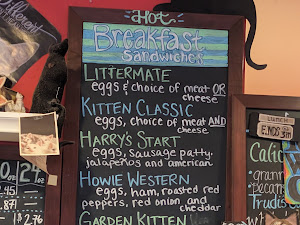 Hot
Breakfast
Sandwiches
LITTERMATE
eggs & choice of meat OR
cheese
KITTEN CLASSIC
eggs, choice of meat AND
cheese
HARRY'S START
eggs, sausage patty
jalapeños and american
HOWIE WESTERN
eggs, ham, roasted red
peppers, red onion, and
cheddar
GARDEN KITTEN
different
20oz
2.45
LUNCH
ENDS @
3pm
Calic